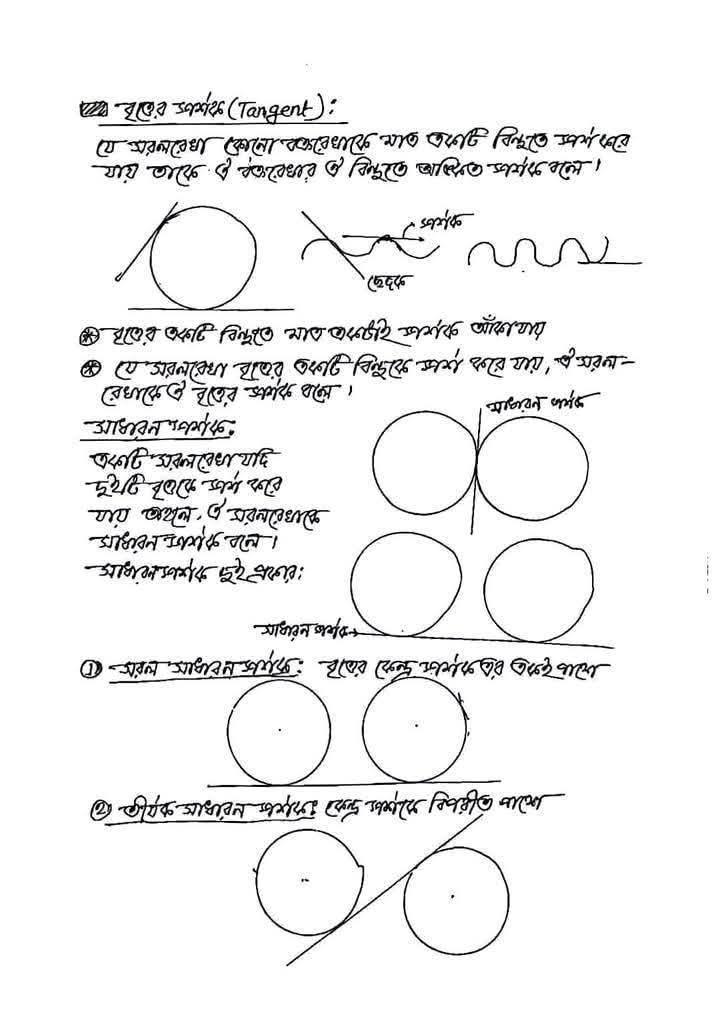 বৃত্তের স্পর্শক (Tangent):
যে সরলরেখা কোনো বক্ররেখাকে মাত্র একটি বিন্দুতে স্পর্শ করে
যায় তাকে ঐ বক্ররেখার ঐ বিন্দুতে অঙ্কিত স্পর্শক বলে।
স্পর্শক
ছেদক
বৃত্তের একটি বিন্দুতে মাত্র একটাই স্পর্শক আঁকা যায়
যে সরলরেখা বৃত্তের একটি বিন্দুকে স্পর্শ করে যায়, ঐ সরল-
রেখাকে ঐ বৃত্তের স্পর্শক বলে।
সাধারন স্পর্শক
সাধারন স্পর্শক:
একটি সরলরেখা যদি
দুইটি বৃত্তকে স্পর্শ করে
যায় তাহলে ঐ সরলরেখাকে
সাধারন স্পর্শক বলে।
সাধারন স্পর্শক দুই প্রকার:
সাধারন স্পর্শক
① সরল সাধারন স্পর্শক: বৃত্তের কেন্দ্র স্পর্শক এর একই পাশে
② তীর্যক সাধারন স্পর্শক: কেন্দ্র স্পর্শকে বিপরীত পাশে